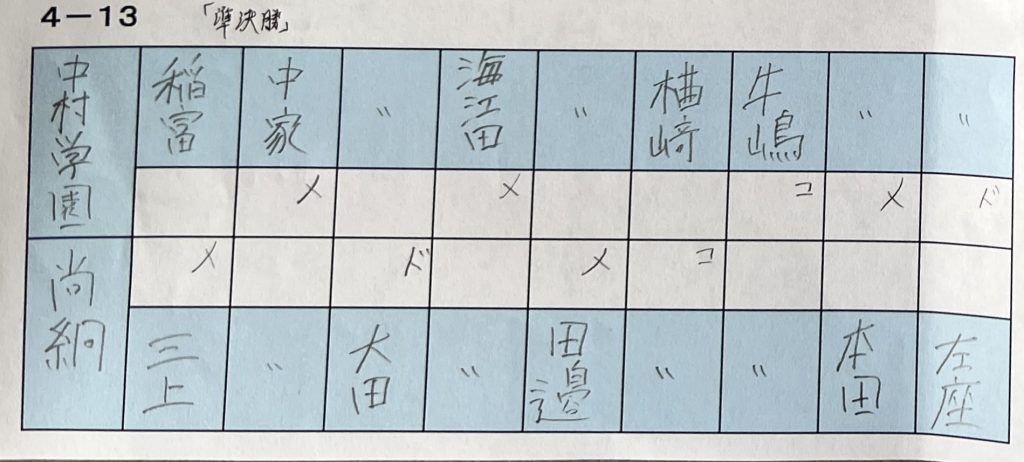 4-13 「準決勝」
中村学園 稲富 中家 〃 海江田 〃 楢﨑 牛嶋 〃 〃
メ メ コ メ ド
尚絅 メ ド メ コ
三上 〃 大田 〃 田邉 〃 〃 本田 左座